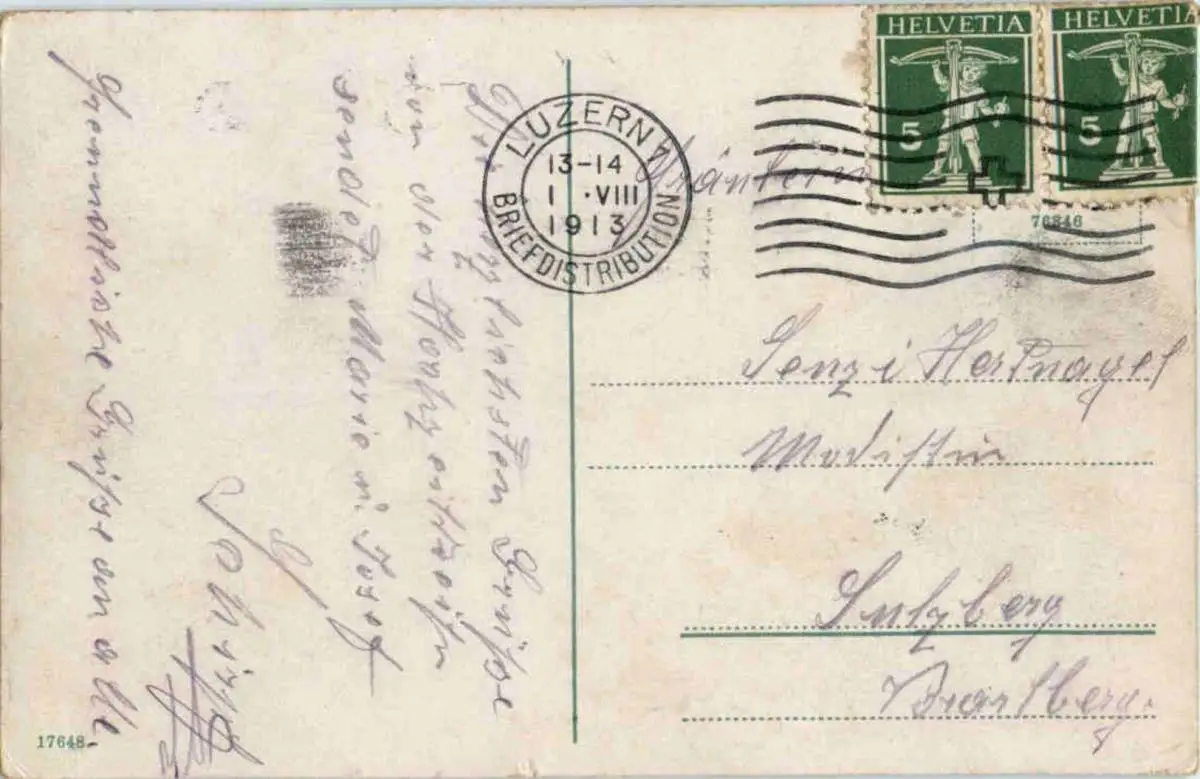 HELVETIA
5
HELVETIA
5
LUZERN 1
13-14
1 ·VIII
1913
BRIEFDISTRIBUTION
76846
Fräulein
Senzi Hertnagel
Modistin
Sulzberg
Vorarlberg.
Die herzlichsten Grüsse
von der Hochzeitreise
sendet Marie u Josef
Freundliche Grüsse an alle
17648